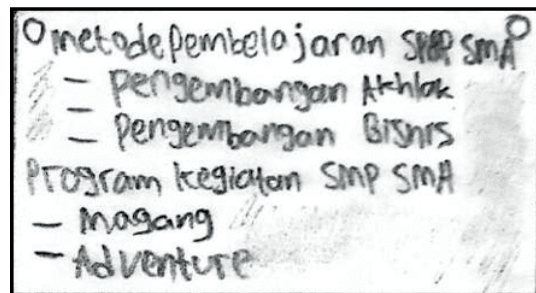 metode Pembelajaran SMP SMA
- Pengembangan Akhlak
- Pengembangan Bisnis
Program kegiatan SMP SMA
- Magang
- Adventure